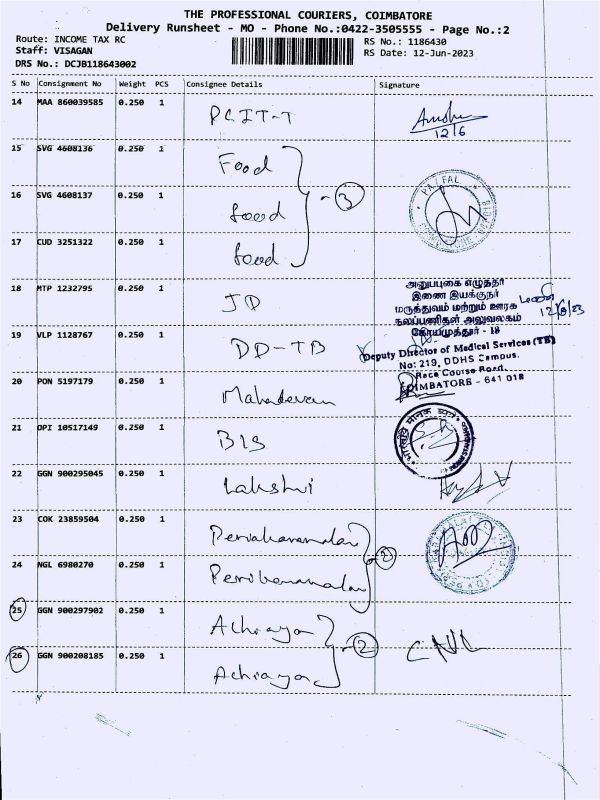 THE PROFESSIONAL COURIERS, COIMBATORE
Delivery Runsheet - MO - Phone No.:0422-3505555 - Page No.:2
Route: INCOME TAX RC
RS No.: 1186430
Staff: VISAGAN
RS Date: 12-Jun-2023
DRS No.: DCJB118643002
S No Consignment No Weight PCS Consignee Details Signature
14 MAA 860039585 0.250 1 PCIT-T
12/6
15 SVG 4608136 0.250 1 Food
16 SVG 4608137 0.250 1 food 3
17 CUD 3251322 0.250 1 food
18 MTP 1232795 0.250 1 JD
அனுப்புகை எழுத்தர்
இணை இயக்குநர்
மருத்துவம் மற்றும் ஊரக
நலப்பணிகள் அலுவலகம்
கோயமுத்தூர் - 18
19 VLP 1128767 0.250 1 DD-TB
Deputy Director of Medical Services (TB)
No: 219, DDHS Campus,
Race Course Road,
COIMBATORE - 641 018
20 PON 5197179 0.250 1 Mahadevan
21 OPI 10517149 0.250 1 BIS
22 GGN 900295045 0.250 1 Lakshmi
23 COK 23859504 0.250 1
24 NGL 6980270 0.250 1
2
25 GGN 900297902 0.250 1 Achraya
26 GGN 900208185 0.250 1 Achraya
2
CNL